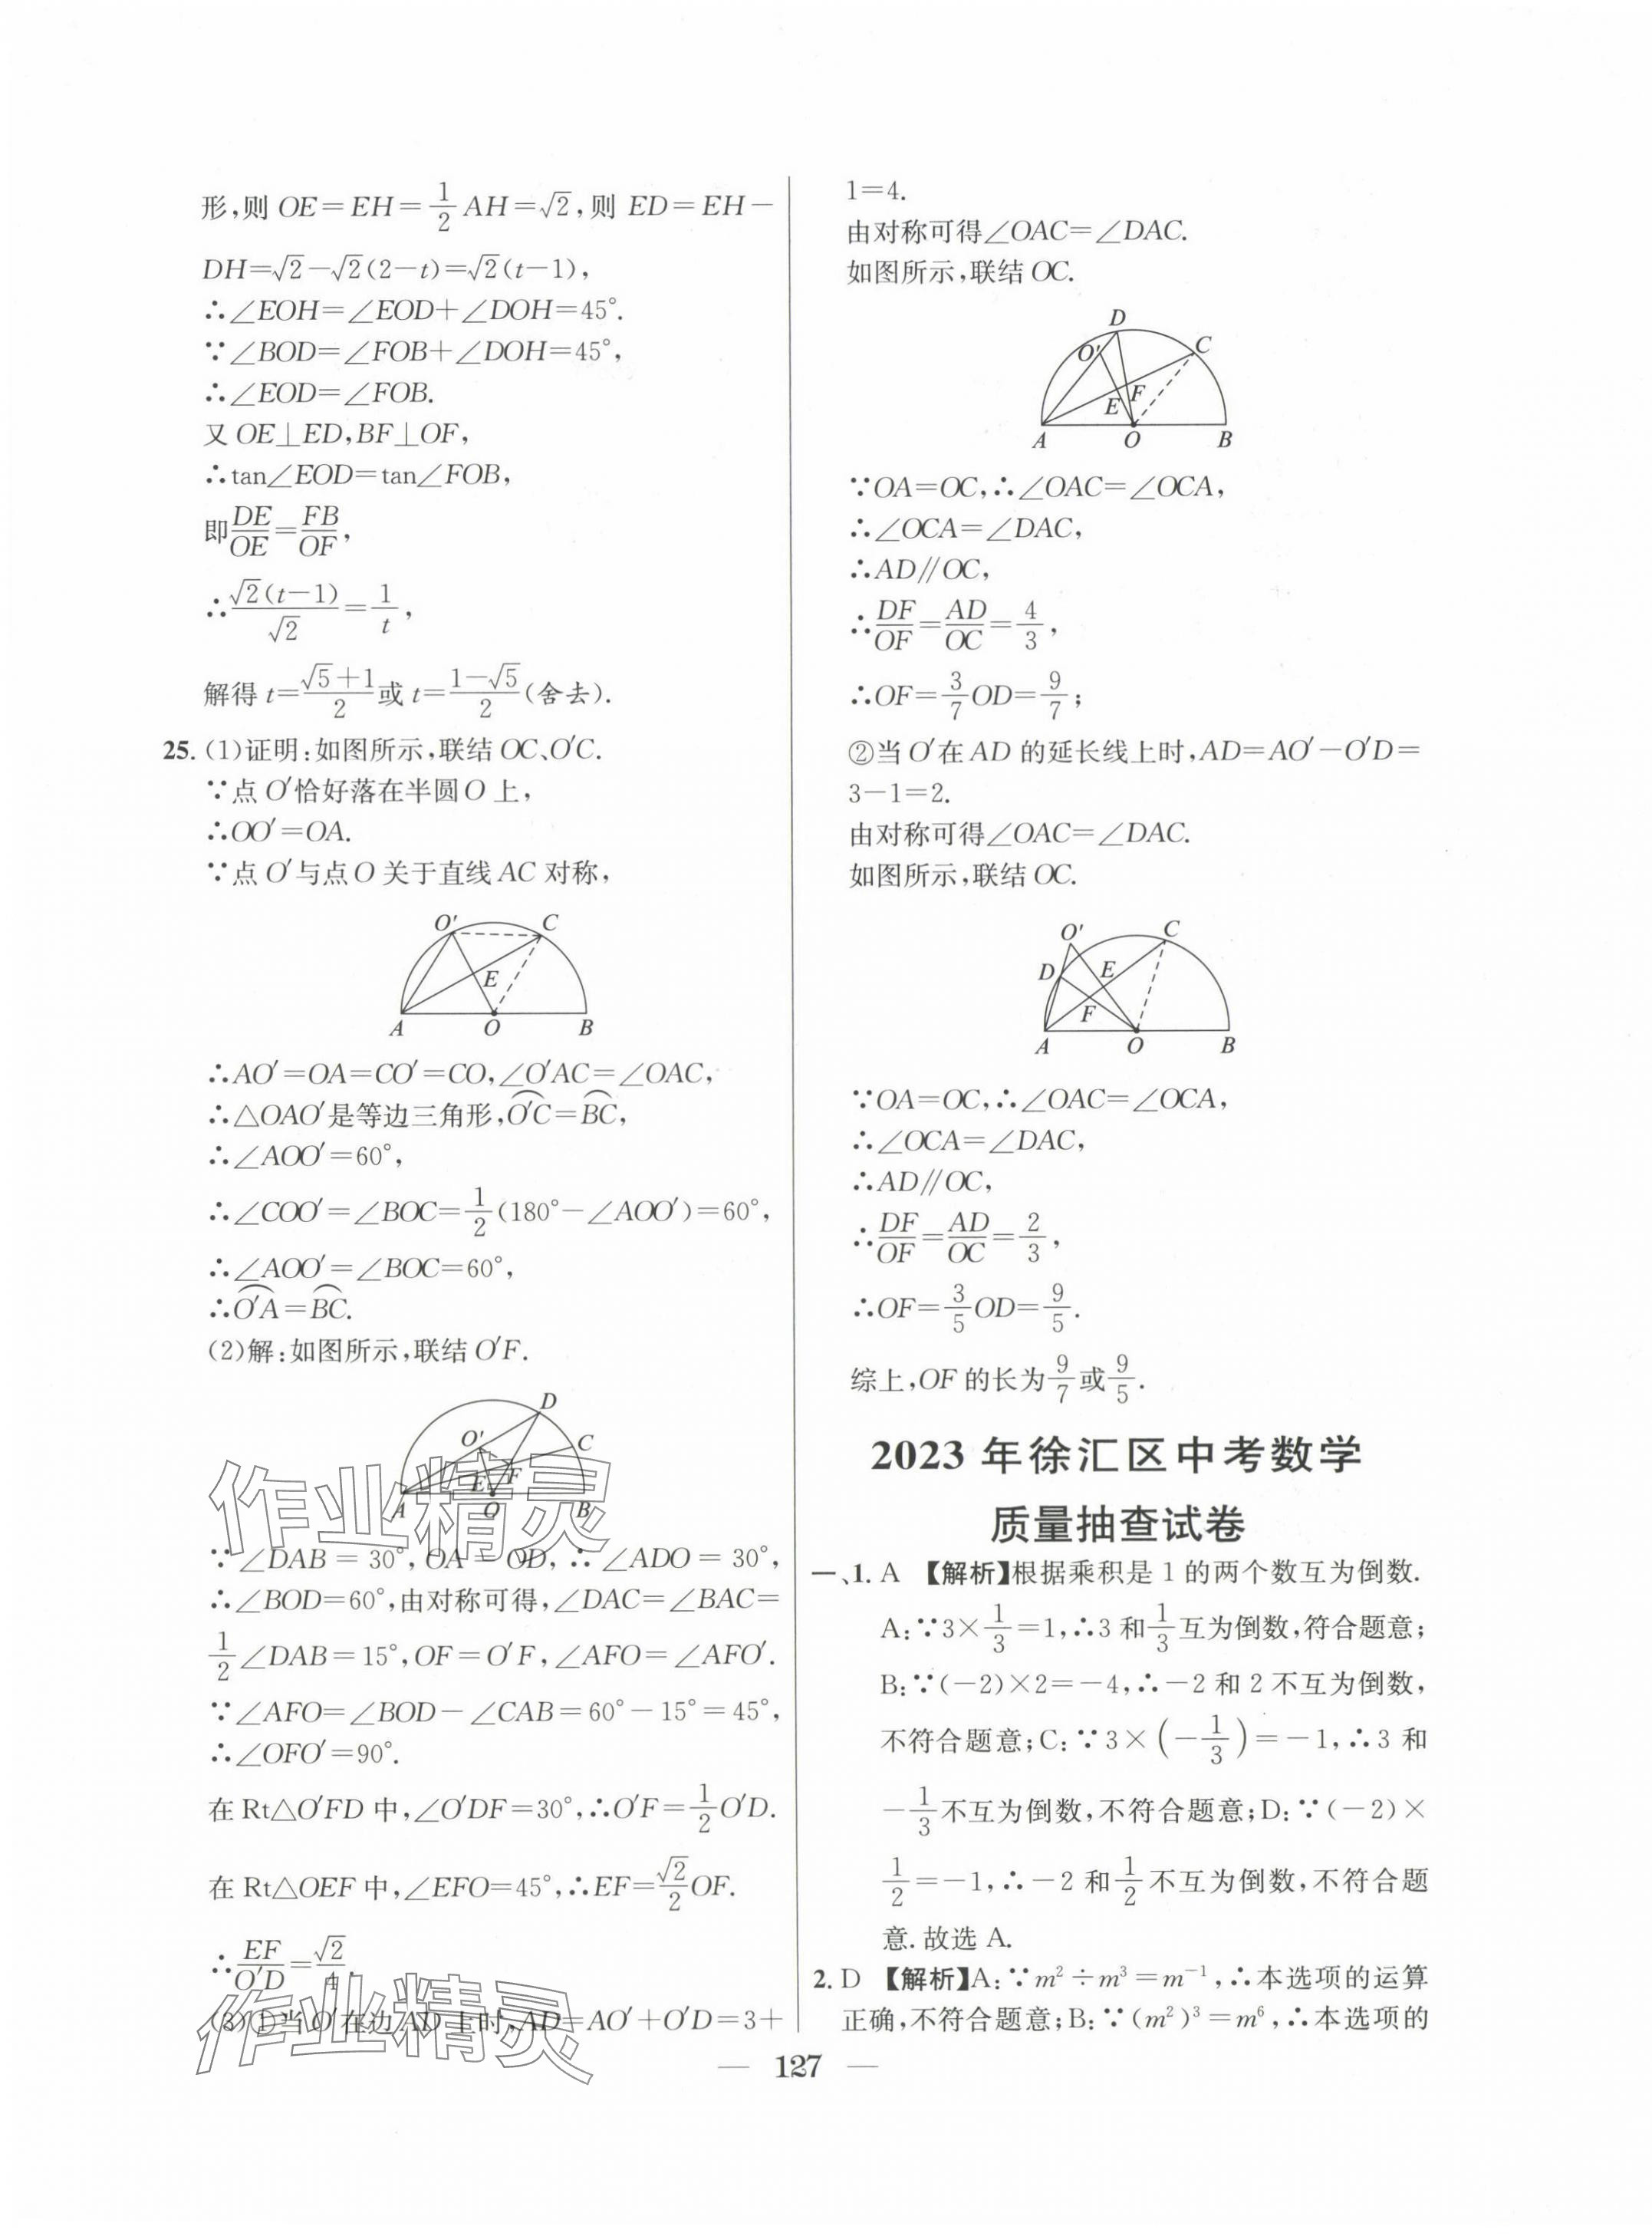 形,则 OE=EH=1/2 AH=√2,则 ED=EH-
DH=√2-√2(2-t)=√2(t-1),
∴∠EOH=∠EOD+∠DOH=45°.
∵∠BOD=∠FOB+∠DOH=45°,
∴∠EOD=∠FOB.
又 OE⊥ED,BF⊥OF,
∴tan∠EOD=tan∠FOB,
即DE/OE=FB/OF,
∴√2(t-1)/√2=1/t,
解得 t=(√5+1)/2或 t=(1-√5)/2(舍去).
25. (1)证明:如图所示,联结 OC、O′C.
∵点 O′恰好落在半圆 O 上,
∴OO′=OA.
∵点 O′与点 O 关于直线 AC 对称,
O′ C
E
A O B
∴AO′=OA=CO′=CO,∠O′AC=∠OAC,
∴△OAO′是等边三角形,O′C⌒=BC⌒,
∴∠AOO′=60°,
∴∠COO′=∠BOC=1/2(180°-∠AOO′)=60°,
∴∠AOO′=∠BOC=60°,
∴O′A⌒=BC⌒.
(2)解:如图所示,联结 O′F.
D
O′ C
E F
A O B
∵∠DAB=30°,OA=OD,∴∠ADO=30°,
∴∠BOD=60°,由对称可得,∠DAC=∠BAC=
1/2∠DAB=15°,OF=O′F,∠AFO=∠AFO′.
∵∠AFO=∠BOD-∠CAB=60°-15°=45°,
∴∠OFO′=90°.
在 Rt△O′FD 中,∠O′DF=30°,∴O′F=1/2O′D.
在 Rt△OEF 中,∠EFO=45°,∴EF=√2/2OF.
∴EF/O′D=√2/4.
(3)①当 O′在边 AD 上时,AD=AO′+O′D=3+
1=4.
由对称可得∠OAC=∠DAC.
如图所示,联结 OC.
D
O′ C
E F
A O B
∵OA=OC,∴∠OAC=∠OCA,
∴∠OCA=∠DAC,
∴AD∥OC,
∴DF/OF=AD/OC=4/3,
∴OF=3/7OD=9/7;
②当 O′在 AD 的延长线上时,AD=AO′-O′D=
3-1=2.
由对称可得∠OAC=∠DAC.
如图所示,联结 OC.
O′ C
D E
F
A O B
∵OA=OC,∴∠OAC=∠OCA,
∴∠OCA=∠DAC,
∴AD∥OC,
∴DF/OF=AD/OC=2/3,
∴OF=3/5OD=9/5.
综上,OF 的长为9/7或9/5.
2023 年徐汇区中考数学
质量抽查试卷
一、1. A 【解析】根据乘积是 1 的两个数互为倒数.
A:∵3×1/3=1,∴3 和1/3互为倒数,符合题意;
B:∵(-2)×2=-4,∴-2 和 2 不互为倒数,
不符合题意;C:∵3×(-1/3)=-1,∴3 和
-1/3不互为倒数,不符合题意;D:∵(-2)×
1/2=-1,∴-2 和1/2不互为倒数,不符合题
意.故选 A.
2. D 【解析】A:∵m²÷m³=m⁻¹,∴本选项的运算
正确,不符合题意;B:∵(m²)³=m⁶,∴本选项的
— 127 —
作业精灵
作业精灵